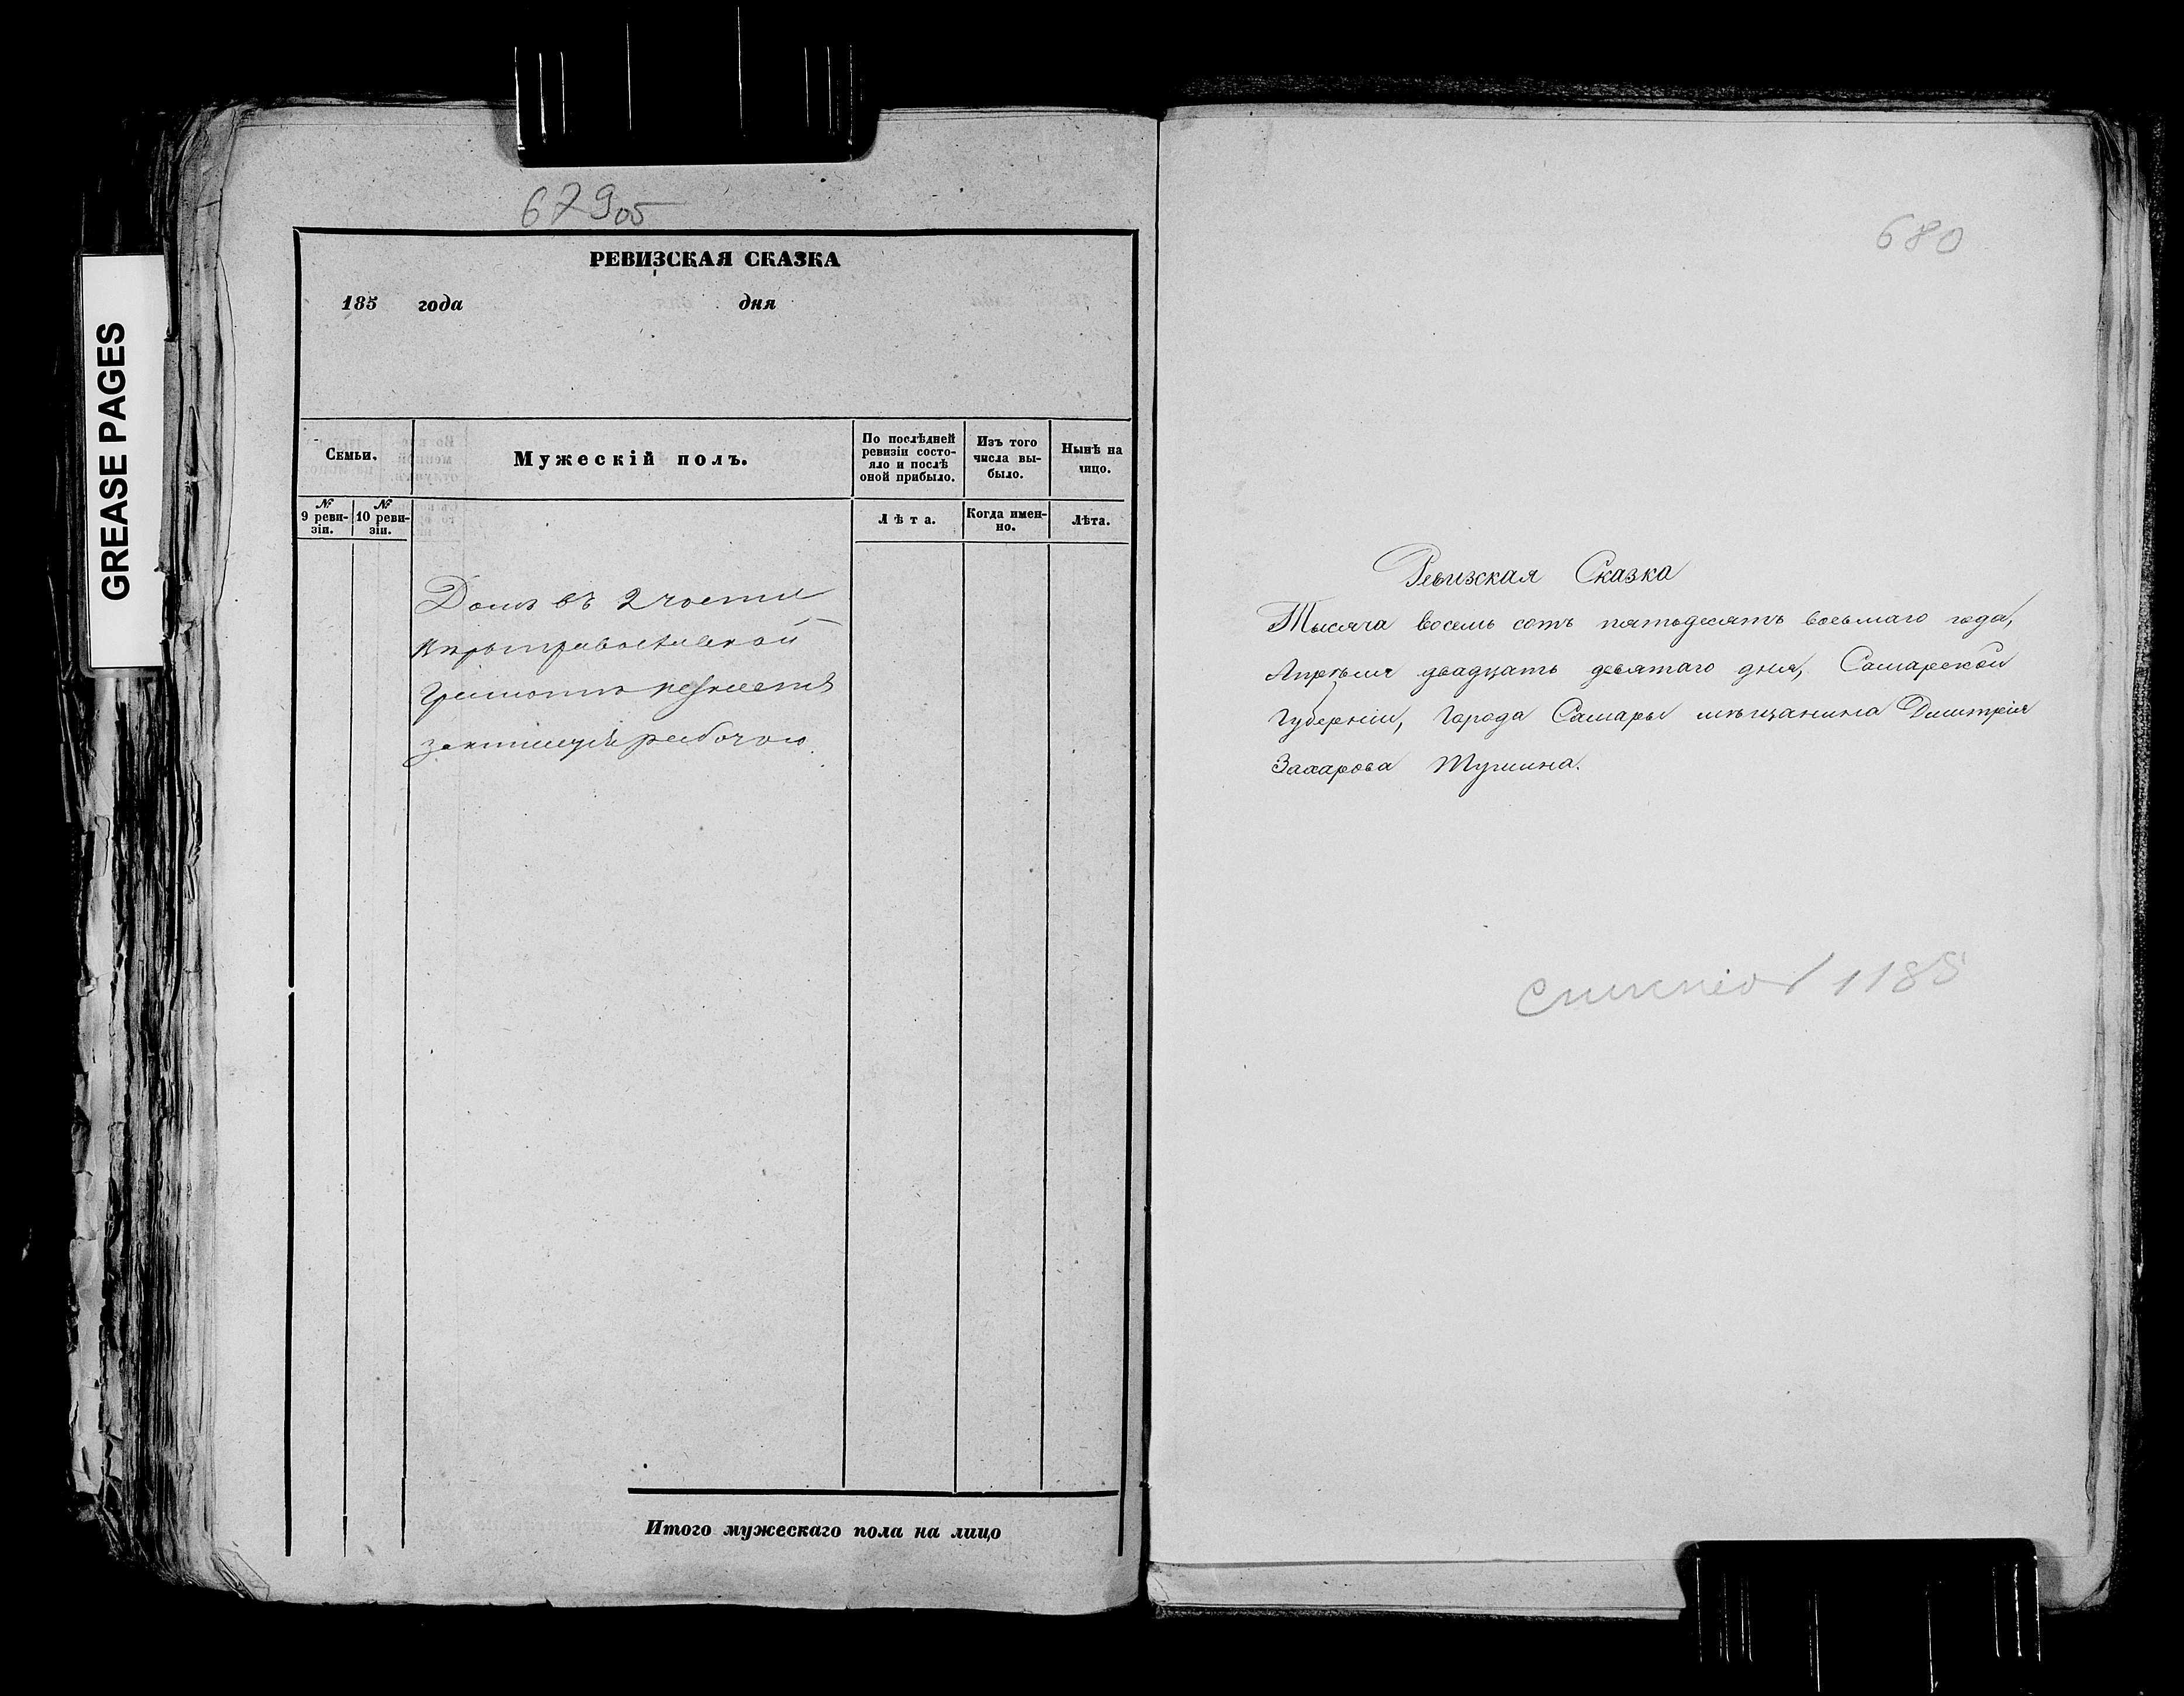 GREASE PAGES
679об
РЕВИЗСКАЯ СКАЗКА
185 года дня
Семьи.
Мужескій полъ.
По послѣдней ревизіи состо-
яло и послѣ
оной прибыло.
Изъ того
числа вы-
было.
Нынѣ на
лицо.
№
9 реви-
зіи.
№
10 реви-
зіи.
Лѣта.
Когда имен-
но.
Лѣта.
Домъ въ 2 части
Вѣры православной
Грамотѣ
занятія рабочаго
Итого мужескаго пола на лицо
680
Ревизская Сказка
Тысяча восемь сотъ пятьдесятъ восьмаго года,
Апрѣля двадцать девятаго дня, Самарской
Губерніи, Города Самары мѣщанина Дмитрія
Захарова Тушина.
1185